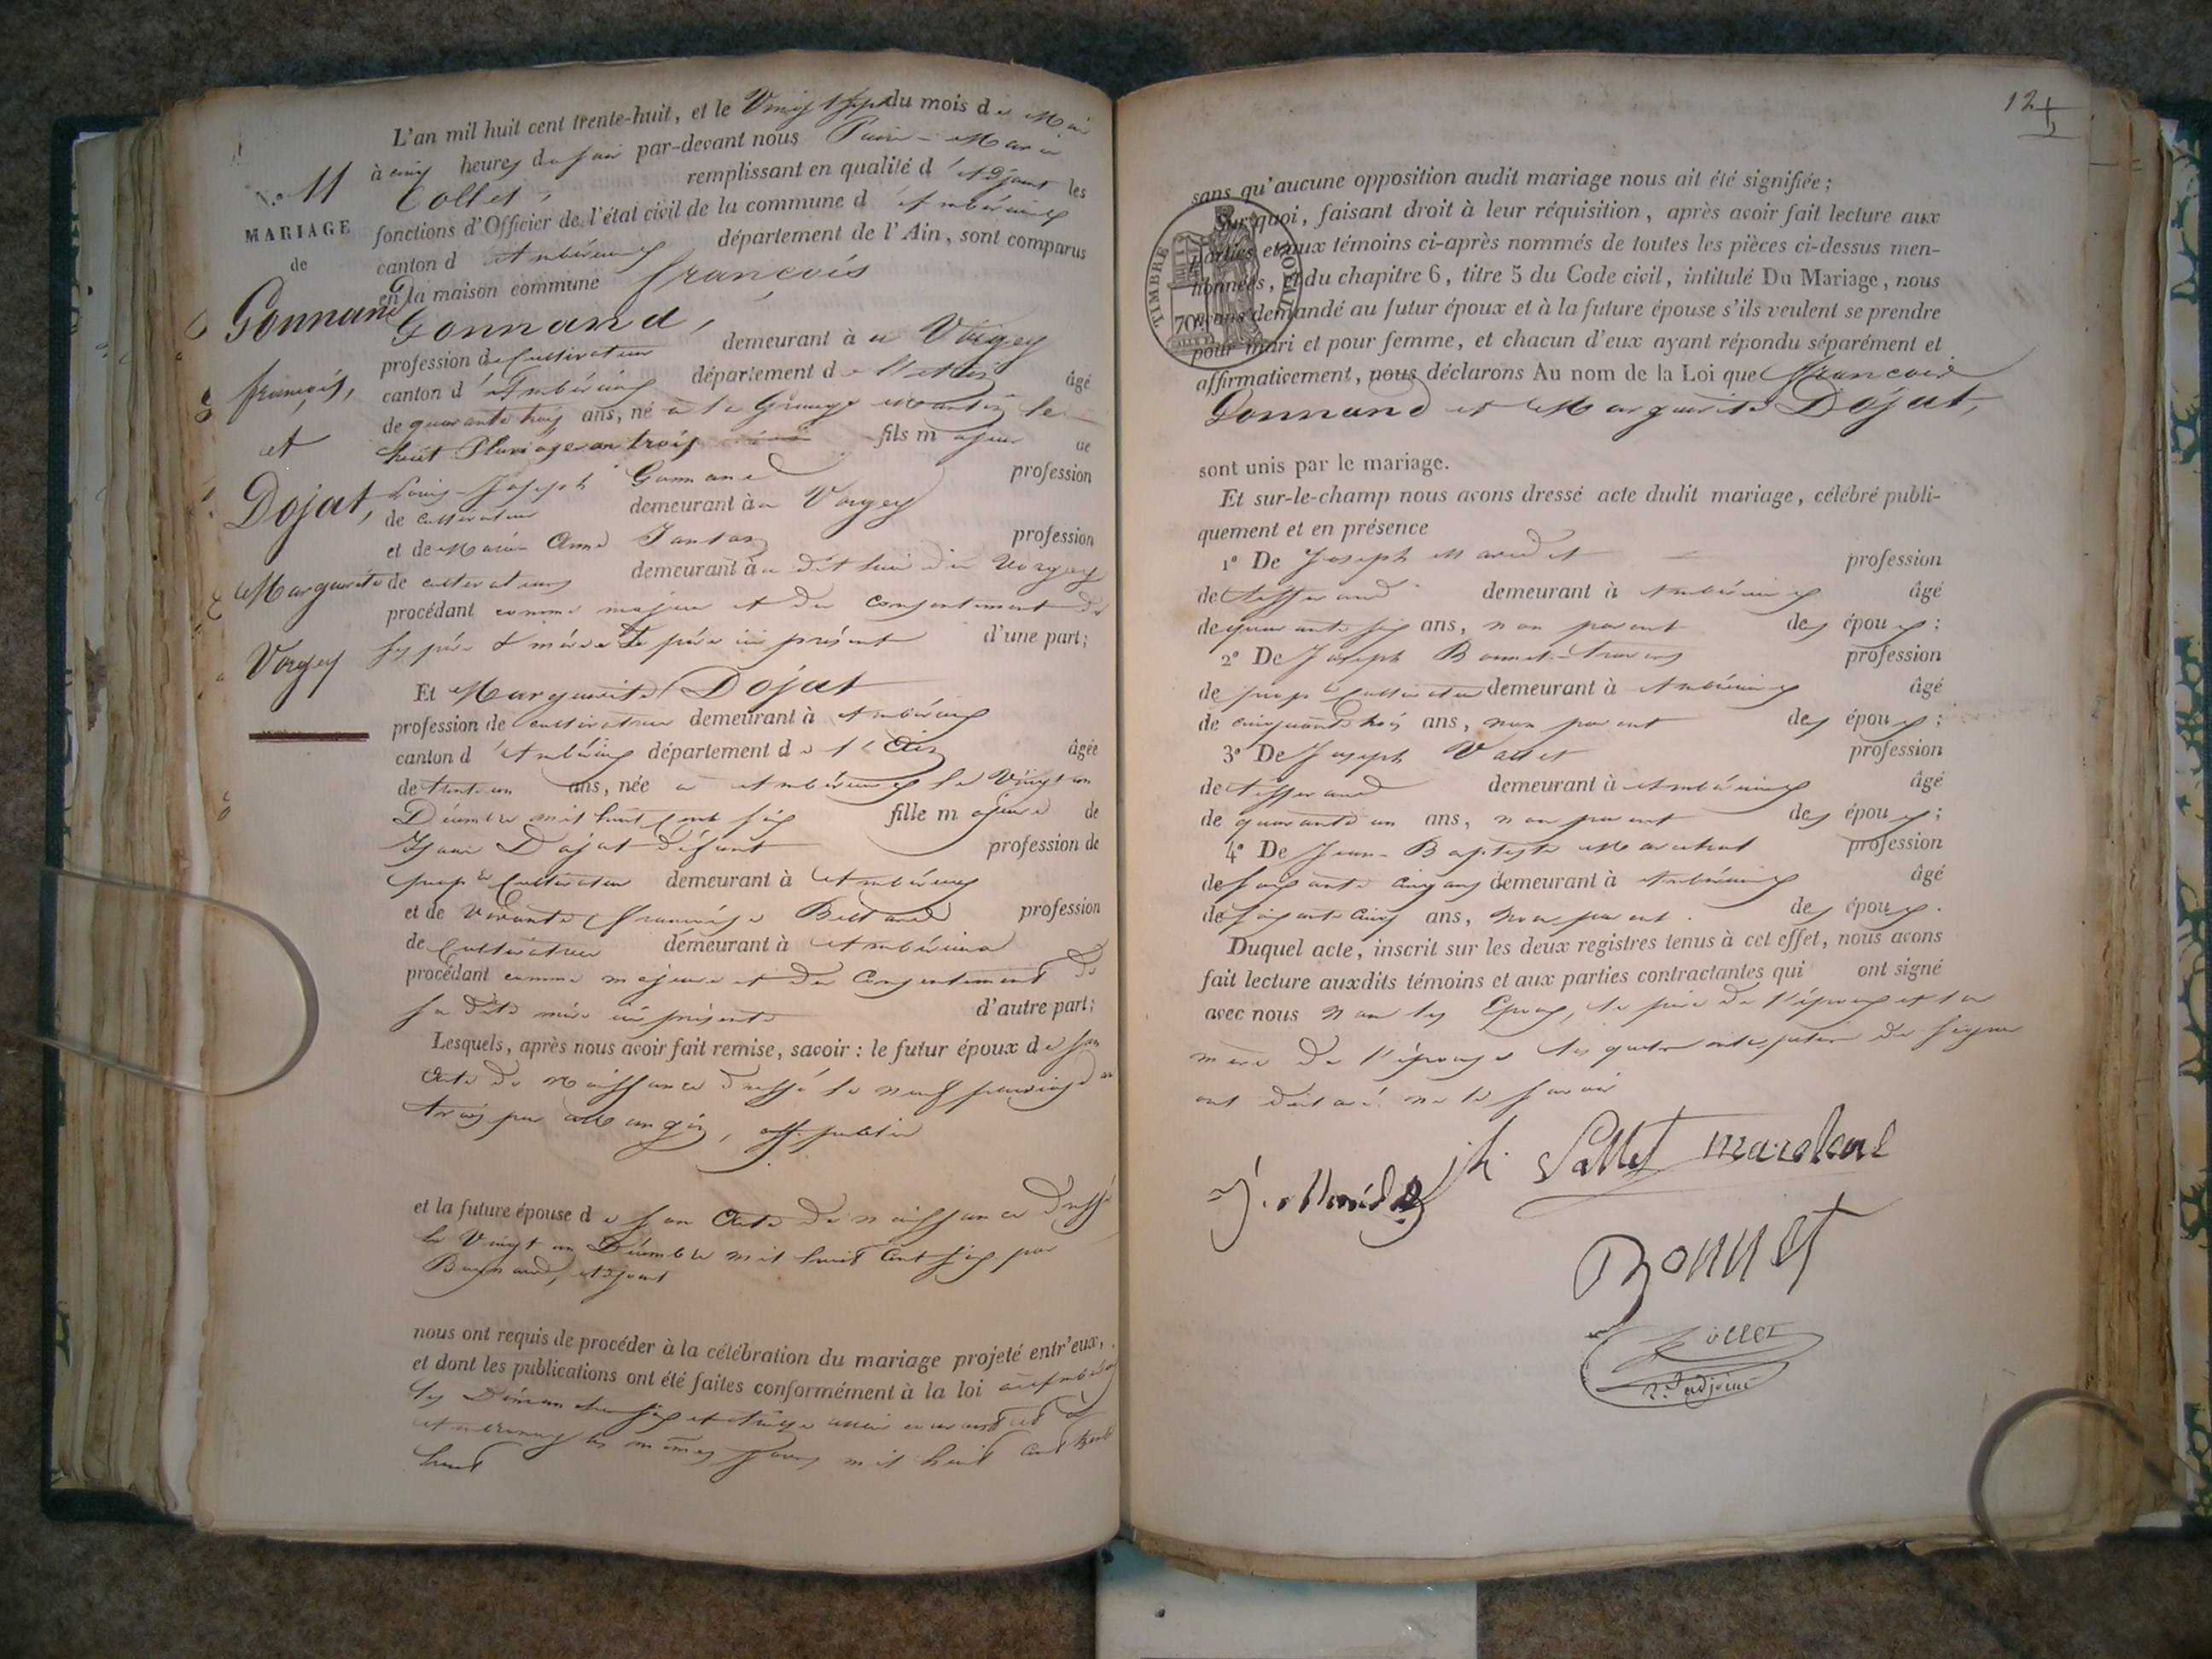 L'an mil huit cent trente-huit, et le Vingt sept du mois de Mai
à cinq heures du soir par-devant nous Pierre-Marie
Collet, remplissant en qualité d'Adjoint les
fonctions d'Officier de l'état civil de la commune d'Ambérieux
canton d'Ambérieux département de l'Ain, sont comparus
en la maison commune françois
Gonnand,
profession de Cultivateur demeurant à
canton d'Ambérieux département de l'Ain âgé
de quarante trois ans, né à la Grange le
huit Pluviose an trois fils majeur de
Louis-Joseph Gonnand profession
de cultivateur demeurant à
et de Marie Anne profession
de cultivateurs demeurant à
procédant comme majeur et du consentement de
ses père & mère le père ici présent d'une part;
Et Marguerite Dojat
profession de cultivatrice demeurant à Ambérieux
canton d'Ambérieux département de l'Ain âgée
de trente un ans, née à Ambérieux le Vingt un
Décembre mil huit cent six fille majeure de
Dojat défunt profession de
prop.re Cultivateur demeurant à Ambérieux
et de vivante françoise profession
de Cultivatrice demeurant à Ambérieux
procédant comme majeure et du Consentement de
sa dite mère ici présente d'autre part;
Lesquels, après nous avoir fait remise, savoir: le futur époux de son
Acte de Naissance dressé le neuf pluviose an
trois par Mangin, off. public
et la future épouse de son Acte de naissance dressé
le Vingt un Décembre mil huit cent six par
adjoint
nous ont requis de procéder à la célébration du mariage projeté entr'eux,
et dont les publications ont été faites conformément à la loi
les Dimanches six et treize mai courant et à
les mêmes jours mil huit cent trente
huit
N.o 11
MARIAGE
de
Gonnand
françois,
et
Dojat,
Marguerite
12
sans qu'aucune opposition audit mariage nous ait été signifiée;
Sur quoi, faisant droit à leur réquisition, après avoir fait lecture aux
parties et aux témoins ci-après nommés de toutes les pièces ci-dessus men-
tionnées, et du chapitre 6, titre 5 du Code civil, intitulé Du Mariage, nous
avons demandé au futur époux et à la future épouse s'ils veulent se prendre
pour mari et pour femme, et chacun d'eux ayant répondu séparément et
affirmativement, nous déclarons Au nom de la Loi que françois
Gonnand et Marguerite Dojat,
TIMBRE ROYAL
70c
sont unis par le mariage.
Et sur-le-champ nous avons dressé acte dudit mariage, célébré publi-
quement et en présence
1° De Joseph profession
de tisserand demeurant à Ambérieux âgé
de quarante six ans, non parent des époux;
2° De Joseph Bonnet profession
de prop.re Cultivateur demeurant à Ambérieux âgé
de cinquante trois ans, non parent des époux;
3° De Joseph Vallet profession
de tisserand demeurant à Ambérieux âgé
de quarante un ans, non parent des époux;
4° De Jean-Baptiste Maréchal profession
de demeurant à Ambérieux âgé
de soixante cinq ans, non parent des époux.
Duquel acte, inscrit sur les deux registres tenus à cet effet, nous avons
fait lecture auxdits témoins et aux parties contractantes qui ont signé
avec nous non les Epoux, le père de l'époux et la
mère de l'épouse les quatre de signer
ont déclaré ne le savoir
jh Vallet
Bonnet
Collet
2.e adjoint